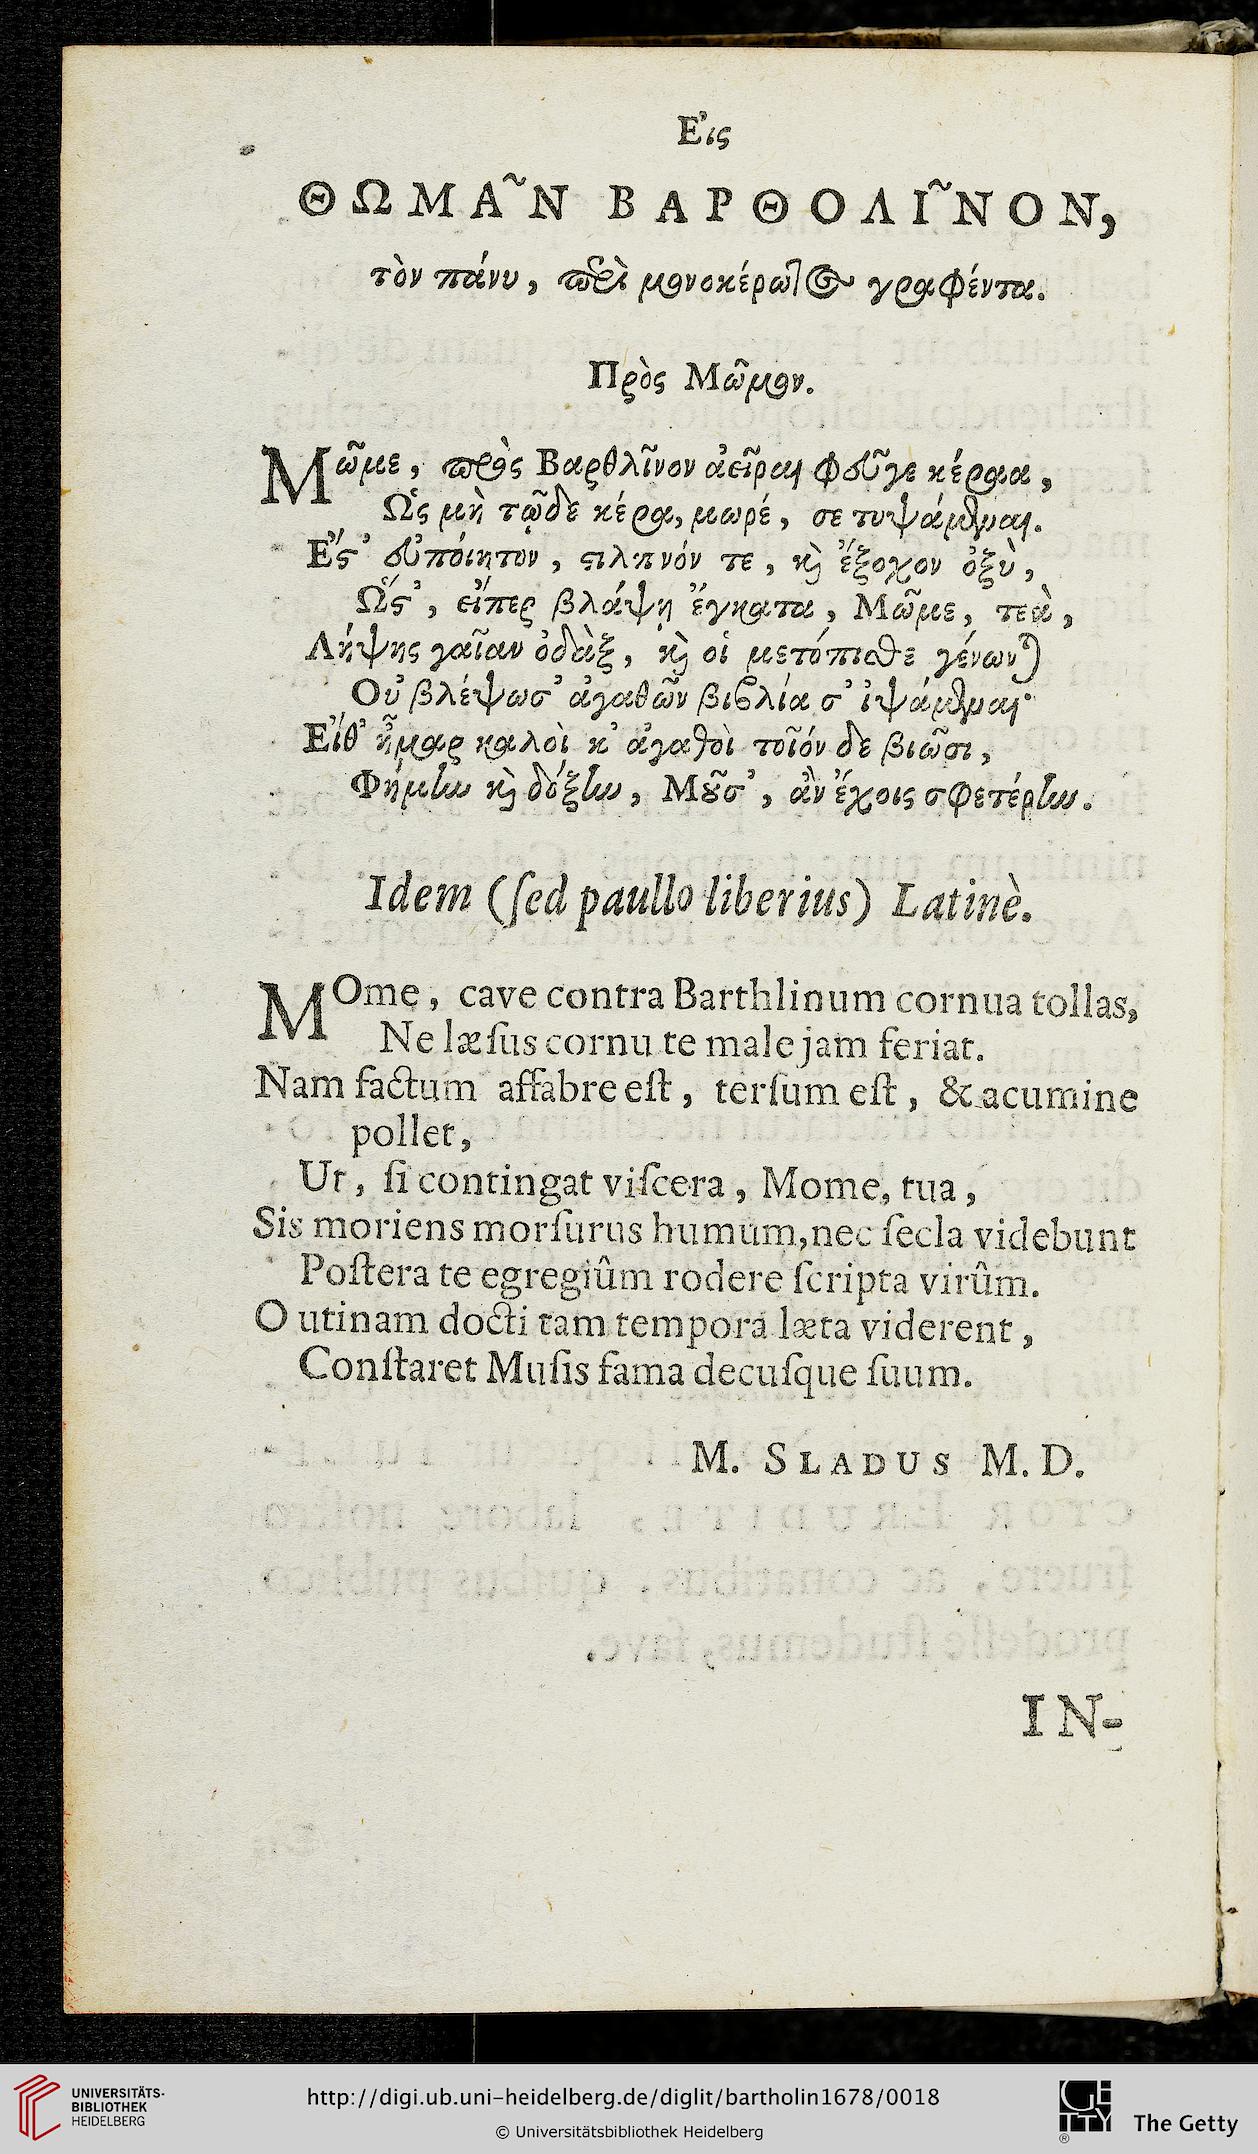 Εἰς
ΘΩΜΑ͂Ν ΒΑΡΘΟΛΙ͂ΝΟΝ,
τὸν πάνυ, περὶ μονοκέρωτος γραφέντα.
Πρὸς Μῶμον.
Μῶμε, πρὸς Βαρθλῖνον ἀεῖραι φεῦγε κέραα,
Ὡς μὴ τῷδε κέρα, μωρέ, σε τυψάμεναι.
Ἔστ' εὐποίητον, στιλπνόν τε, καὶ ἔξοχον ὀξὺ,
Ὥστ', εἴπερ βλάψῃ ἔγκατα, Μῶμε, τεὰ,
Λήψης γαῖαν ὀδὰξ, καὶ οἱ μετόπισθε γένωνται
Οὐ βλέψωσ' ἀγαθῶν βιβλία σ' ἰψάμεναι·
Εἴθ' ἦμαρ καλοὶ κ' ἀγαθοὶ τοῖόν δε βιῶσι,
Φήμην καὶ δόξην, Μοῦσ', ἀν ἔχοις σφετέρην.
Idem (ſed paullo liberius) Latinè.
MOme, cave contra Barthlinum cornua tollas,
Ne læſus cornu te male jam feriat.
Nam factum affabre eſt, terſum eſt, & acumine
pollet,
Ut, ſi contingat viſcera, Mome, tua,
Sis moriens morſurus humum, nec ſecla videbunt
Poſtera te egregiûm rodere ſcripta virûm.
O utinam docti tam tempora læta viderent,
Conſtaret Muſis fama decuſque ſuum.
M. SLADUS M. D.
IN-
UNIVERSITÄTS-
BIBLIOTHEK
HEIDELBERG
http://digi.ub.uni-heidelberg.de/diglit/bartholin1678/0018
© Universitätsbibliothek Heidelberg
The Getty